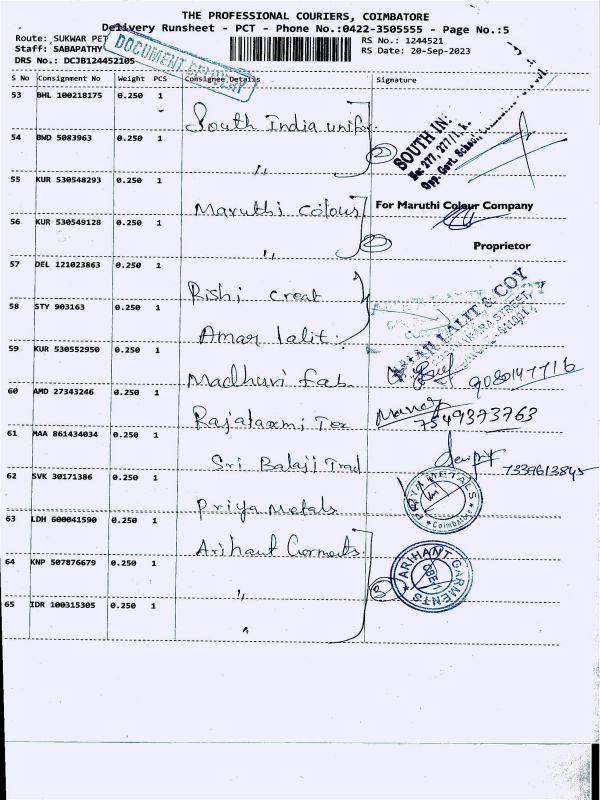 THE PROFESSIONAL COURIERS, COIMBATORE
Delivery Runsheet - PCT - Phone No.:0422-3505555 - Page No.:5
Route: SUKWAR PET
RS No.: 1244521
Staff: SABAPATHY
RS Date: 20-Sep-2023
DRS No.: DCJB124452105
DOCUMENT DELIVERY
S No Consignment No Weight PCS Consignee Details Signature
53 BHL 100218175 0.250 1
South India unifor
SOUTH IN
No: 277, 277/1, K.
Opp. Govt. School,
54 BWD 5083963 0.250 1
"
2
55 KUR 530548293 0.250 1
Maruthi Colour
For Maruthi Colour Company
56 KUR 530549128 0.250 1
"
2
Proprietor
57 DEL 121023863 0.250 1
Rishi Creat
58 STY 903163 0.250 1
Amar lalit.
AMAR LALIT & COY
STREET,
59 KUR 530552950 0.250 1
Madhuri fab.
9080147716
60 AMD 27343246 0.250 1
Rajalaxmi Tex
Manoj
7549373763
61 MAA 861434034 0.250 1
Sri Balaji Trad
7339613845
62 SVK 30171386 0.250 1
Priya Metals
PRIYA METALS
Coimbatore
63 LDH 600041590 0.250 1
Arihant Garments.
ARIHANT GARMENTS
CBE-1
64 KNP 507876679 0.250 1
"
3
65 IDR 100315305 0.250 1
"